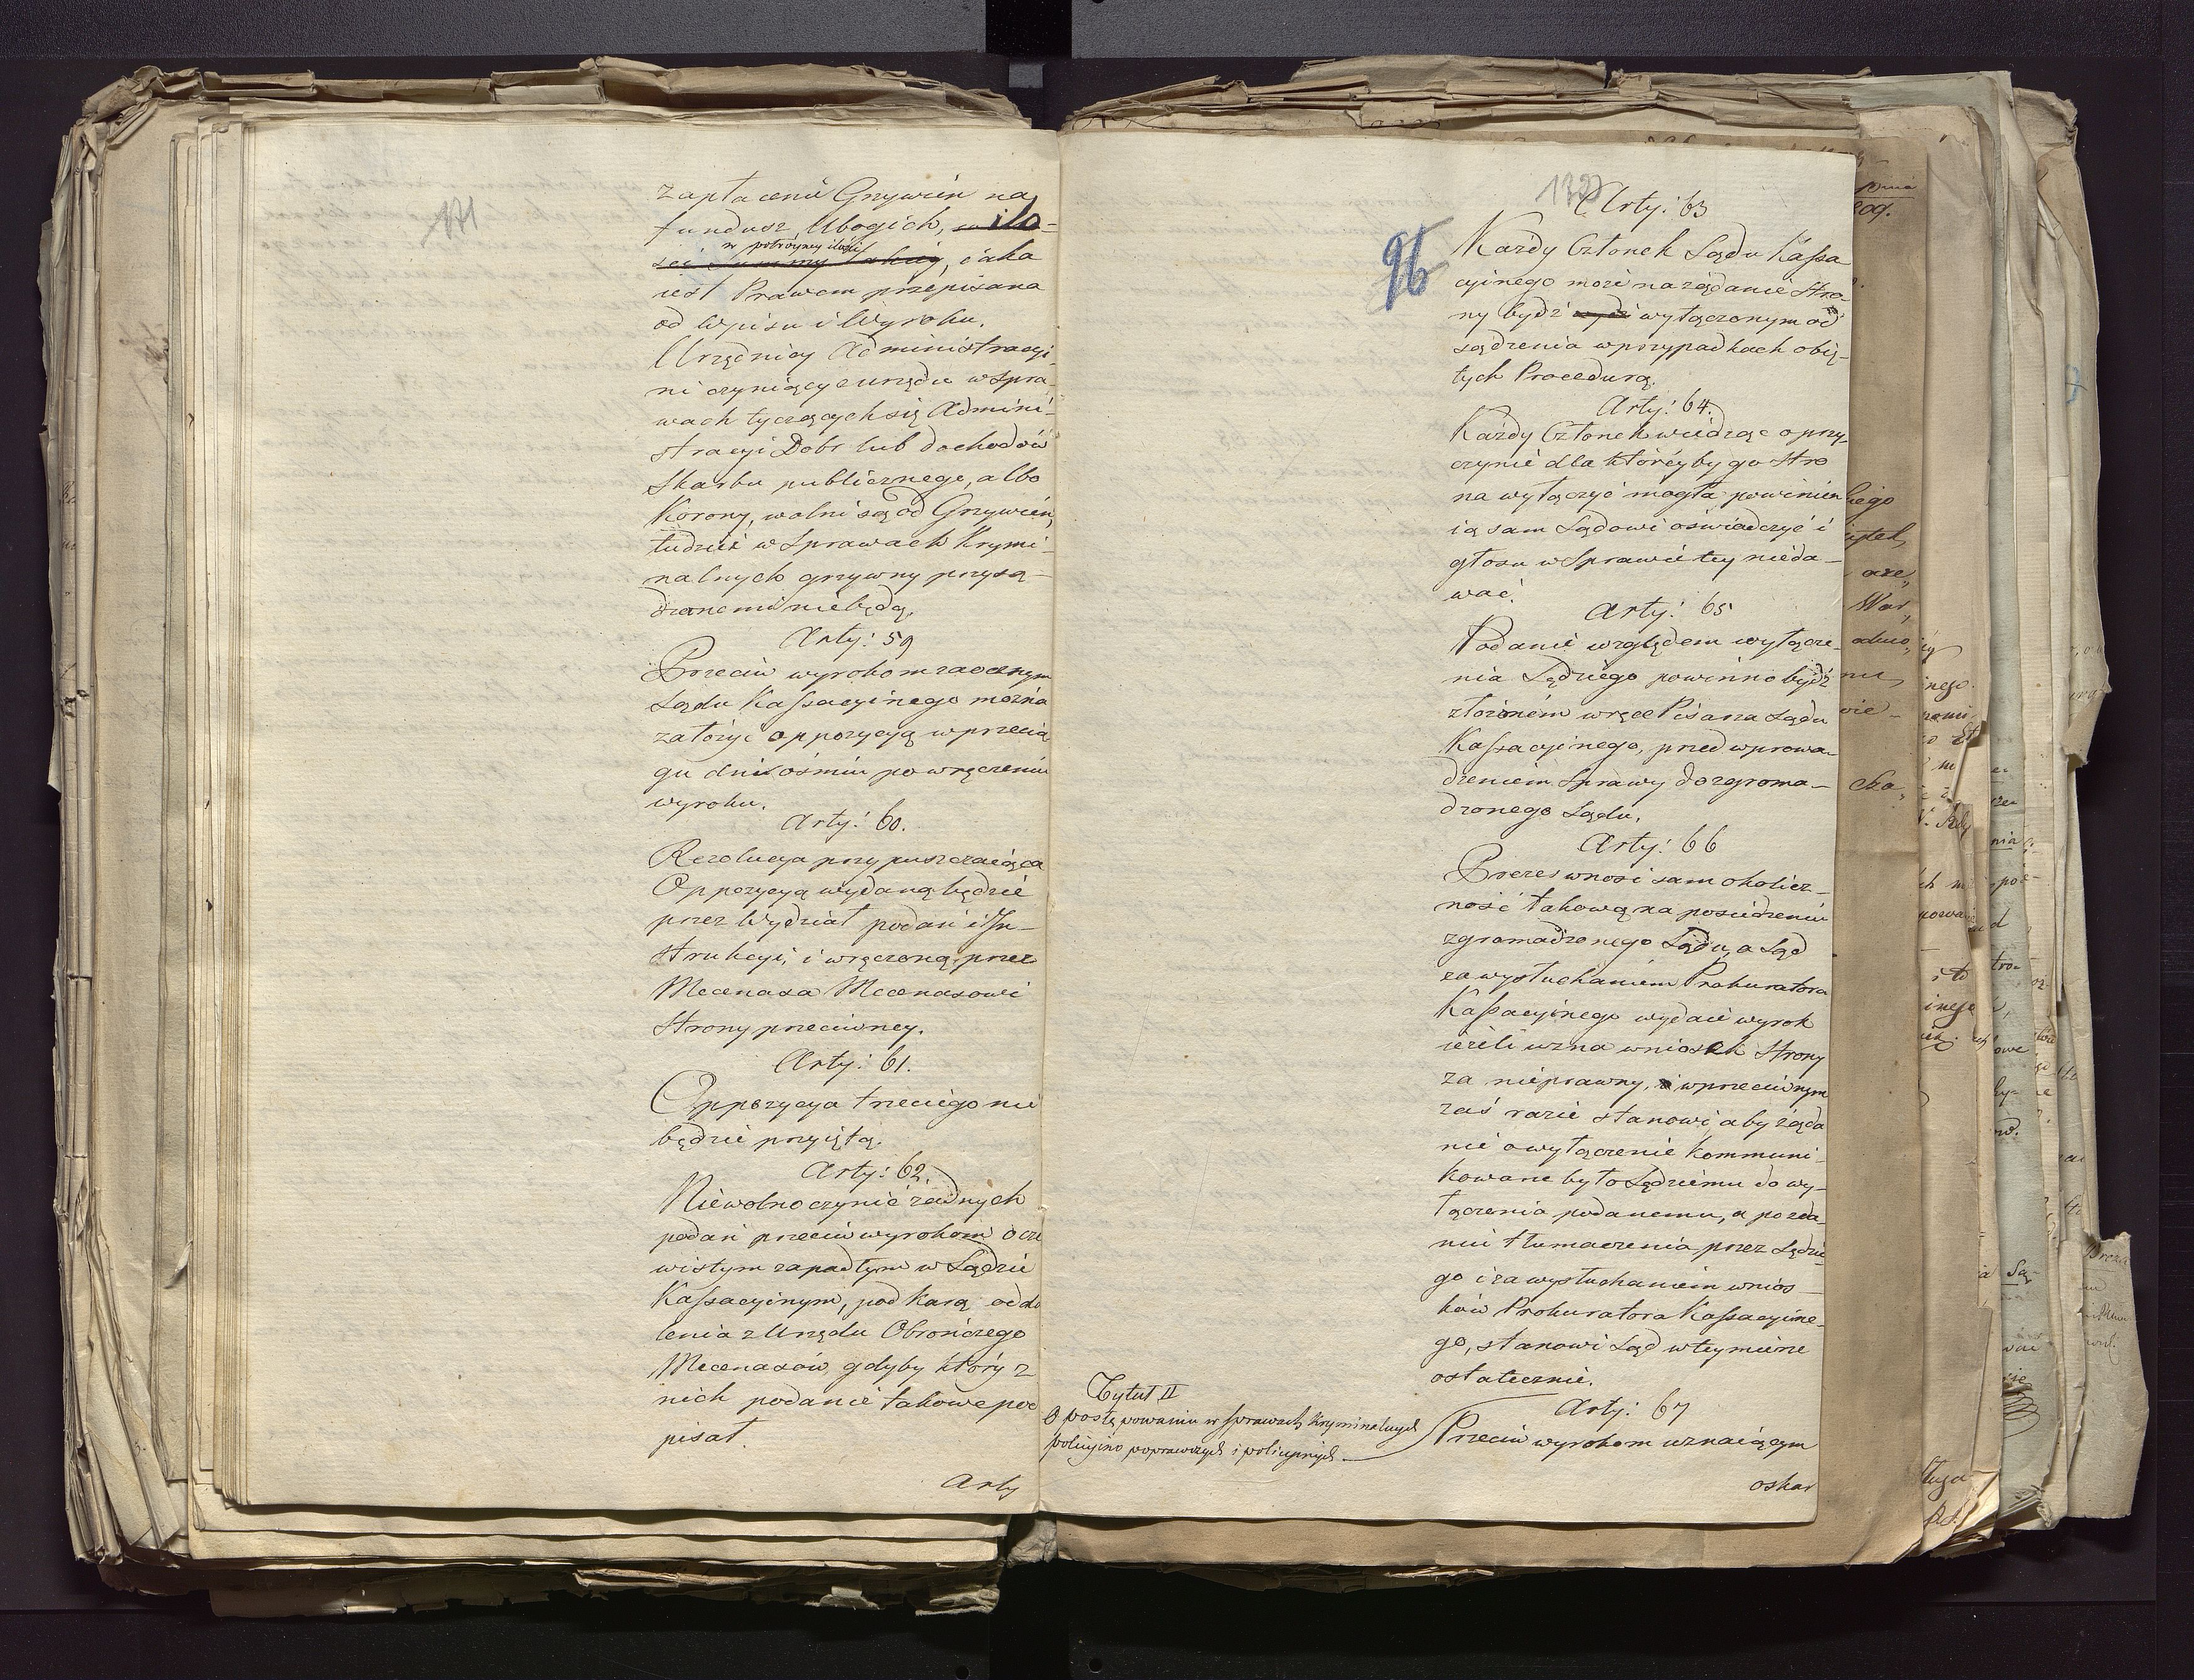 171
zapłacenie Grzywien na
fundusz Ubogich, w ilo-
ści summy takiey, iaka
w potróyney ilości
iest Prawem przepisana
od Wpisu i Wyroku.
Urzędnicy Administracyi-
ni czyniący z urzędu w spra-
wach tyczących się Admini-
stracyi Dobr lub dochodów
Skarbu publicznego, albo
Korony, wolni są od Grzywien,
tudzież w Sprawach Krymi-
nalnych grzywny przysą-
dzonemi niebędą.
Arty: 59
Przeciw wyrokom zaocznym
Sądu Kassacyinego można
założyć oppozycyą w przecią
gu dni ośmiu po wręczeniu
wyroku.
Arty: 60.
Rezolucya przypuszczaiąca
Oppozycyą wydaną będzie
przez Wydział podań i In-
strukcyi, i wręczoną przez
Mecenasa Mecenasowi
Strony przeciwney.
Arty: 61.
Oppozycya trzeciego nie
będzie przyiętą.
Arty: 62.
Niewolno czynić żadnych
podań przeciw wyrokom ocze
wistym zapadłym w Sądzie
Kassacyinym, pod karą oddo
lenia z Urzędu Obrończego
Mecenasów, gdyby który z
nich podanie takowe pod
pisał.
Arty
96
Arty: 63
Każdy Członek Sądu Kassa
cyinego może na żądanie Stro-
ny bydź wyłączonym od
sądzenia w przypadkach obię-
tych Procedurą.
Arty: 64.
Każdy Członek wiedząc o przy-
czynie dla któréyby go Stro
na wyłączyć mogła powinien
ią sam Sądowi oświadczyć i
głosu w Sprawie tey nieda-
wać.
Arty: 65
Podanie względem wyłącze-
nia Sędziego powinno bydź
złożoném w ręce Pisarza Sądu
Kassacyinego, przed wprowa-
dzeniem Sprawy do zgroma-
dzonego Sądu.
Arty: 66
Prezes wnosi sam okolicz-
ność takową na posiedzeniu
zgromadzonego Sądu, a Sąd
za wysłuchaniem Prokuratora
Kassacyinego wydaie wyrok
ieżeli uzna wniosek Strony
za nieprawny, w przeciwnym
zaś razie stanowi, aby żąda
nie o wyłączenie kommuni-
kowane było Sędziemu do wy-
łączenia podanemu, a po zda-
niu tłumaczenia przez Sędzie-
go i za wysłuchaniem wnios-
ków Prokuratora Kassacyine-
go, stanowi Sąd w tey mierze
ostatecznie.
Tytuł II
O postępowaniu w sprawach kryminalnych
policyino poprawczych i policyinych.
Arty: 67
Przeciw wyrokom uznaiącym
oskar